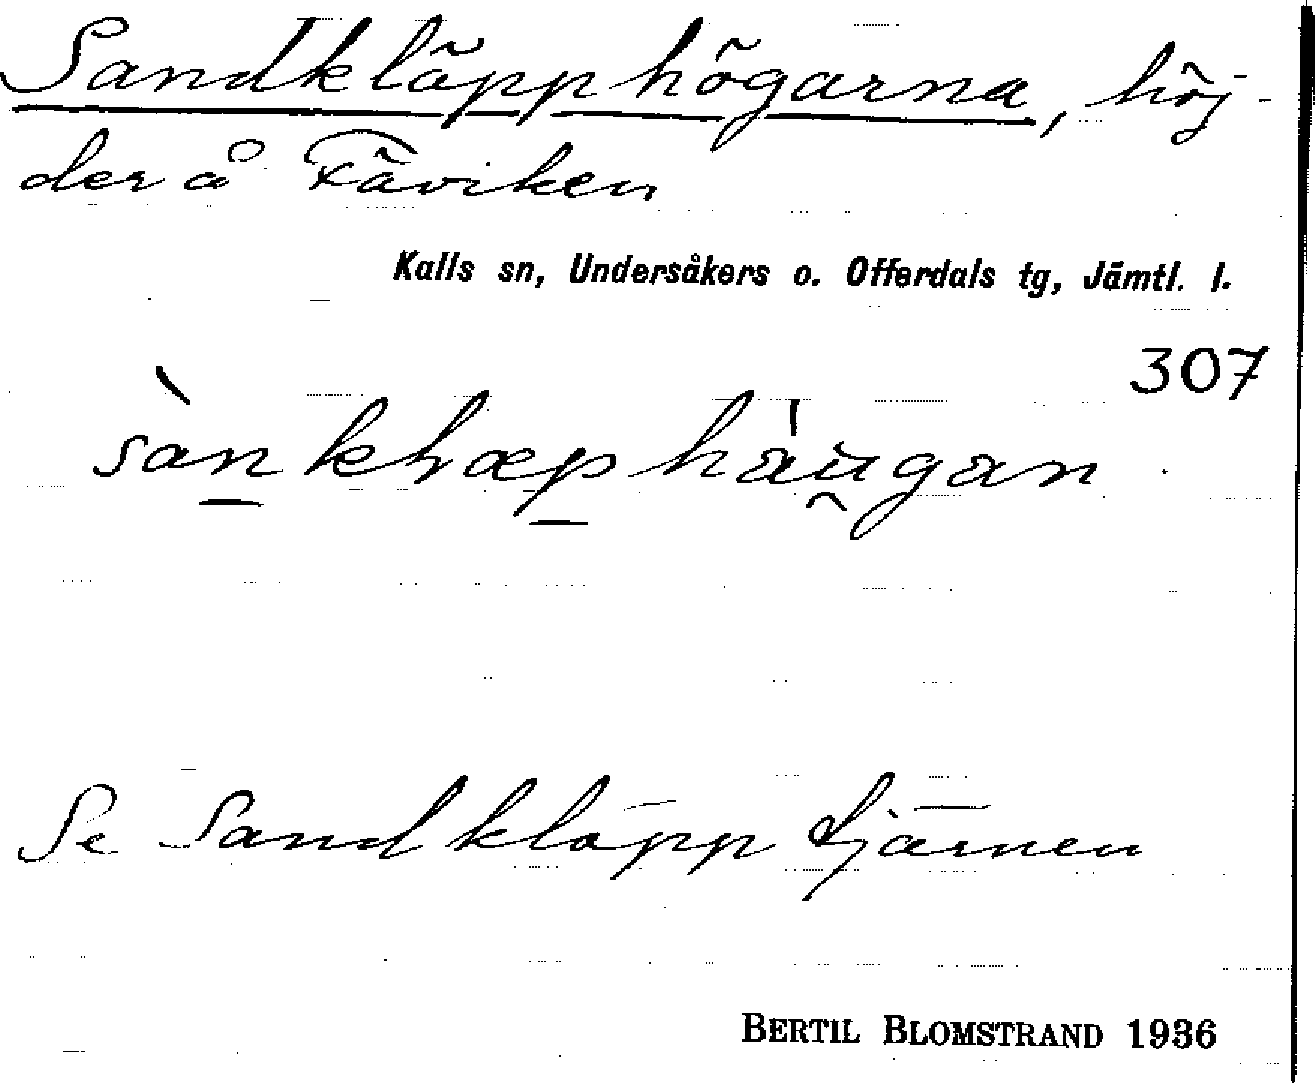 Sandkläpphögarna, höj-
der å Fäviken
Kalls sn, Undersåkers o. Offerdals tg, Jämtl. l.
307
Se Sandkläpptjärnen
BERTIL BLOMSTRAND 1936